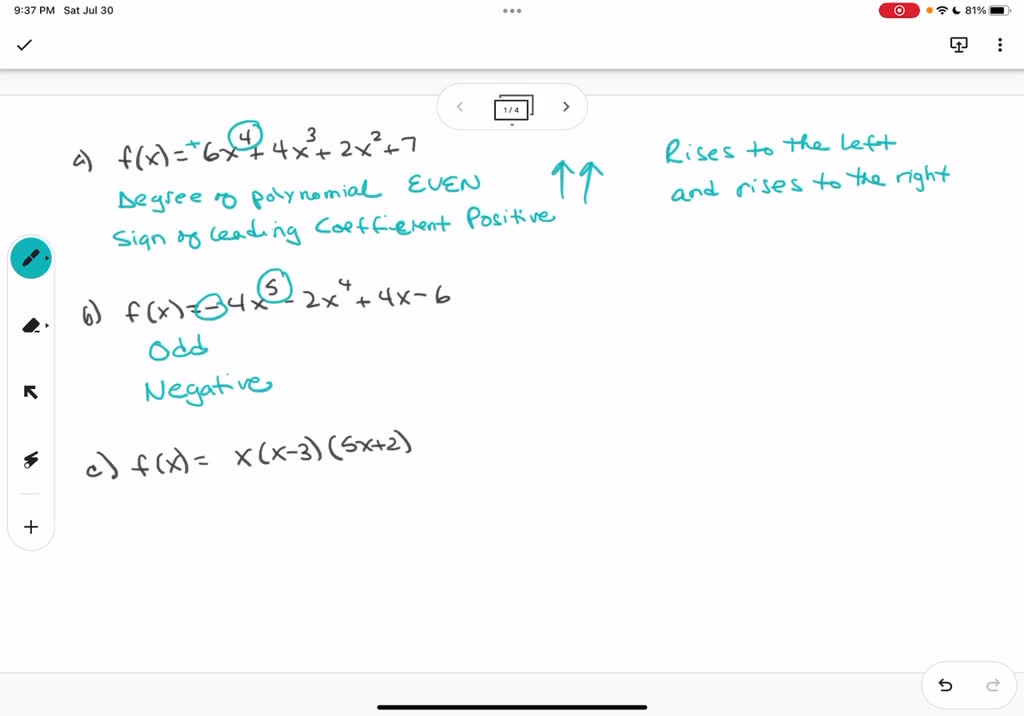 9:37 PM Sat Jul 30
81%
1/4
a) f(x)=+6x⁴+4x³+2x²+7
Degree of polynomial EVEN
Sign of leading Coefficient Positive
↑↑
Rises to the left
and rises to the right
b) f(x)=-4x⁵-2x⁴+4x-6
Odd
Negative
c) f(x)= x(x-3)(5x+2)